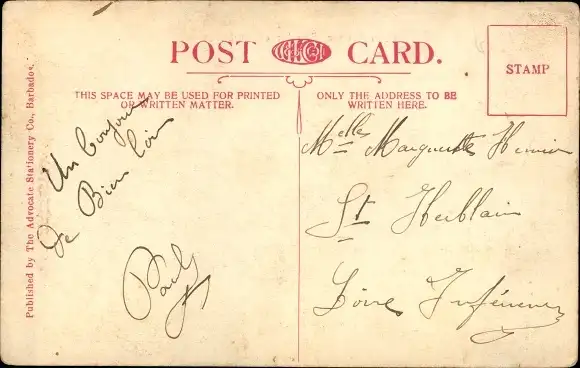 POST CARD.
STAMP
THIS SPACE MAY BE USED FOR PRINTED
OR WRITTEN MATTER.
ONLY THE ADDRESS TO BE
WRITTEN HERE.
Published by The Advocate Stationery Co., Barbados.
Un bonjour
De Bien loin
Paul
Melle Marguerite
St Herblain
Loire Inférieure